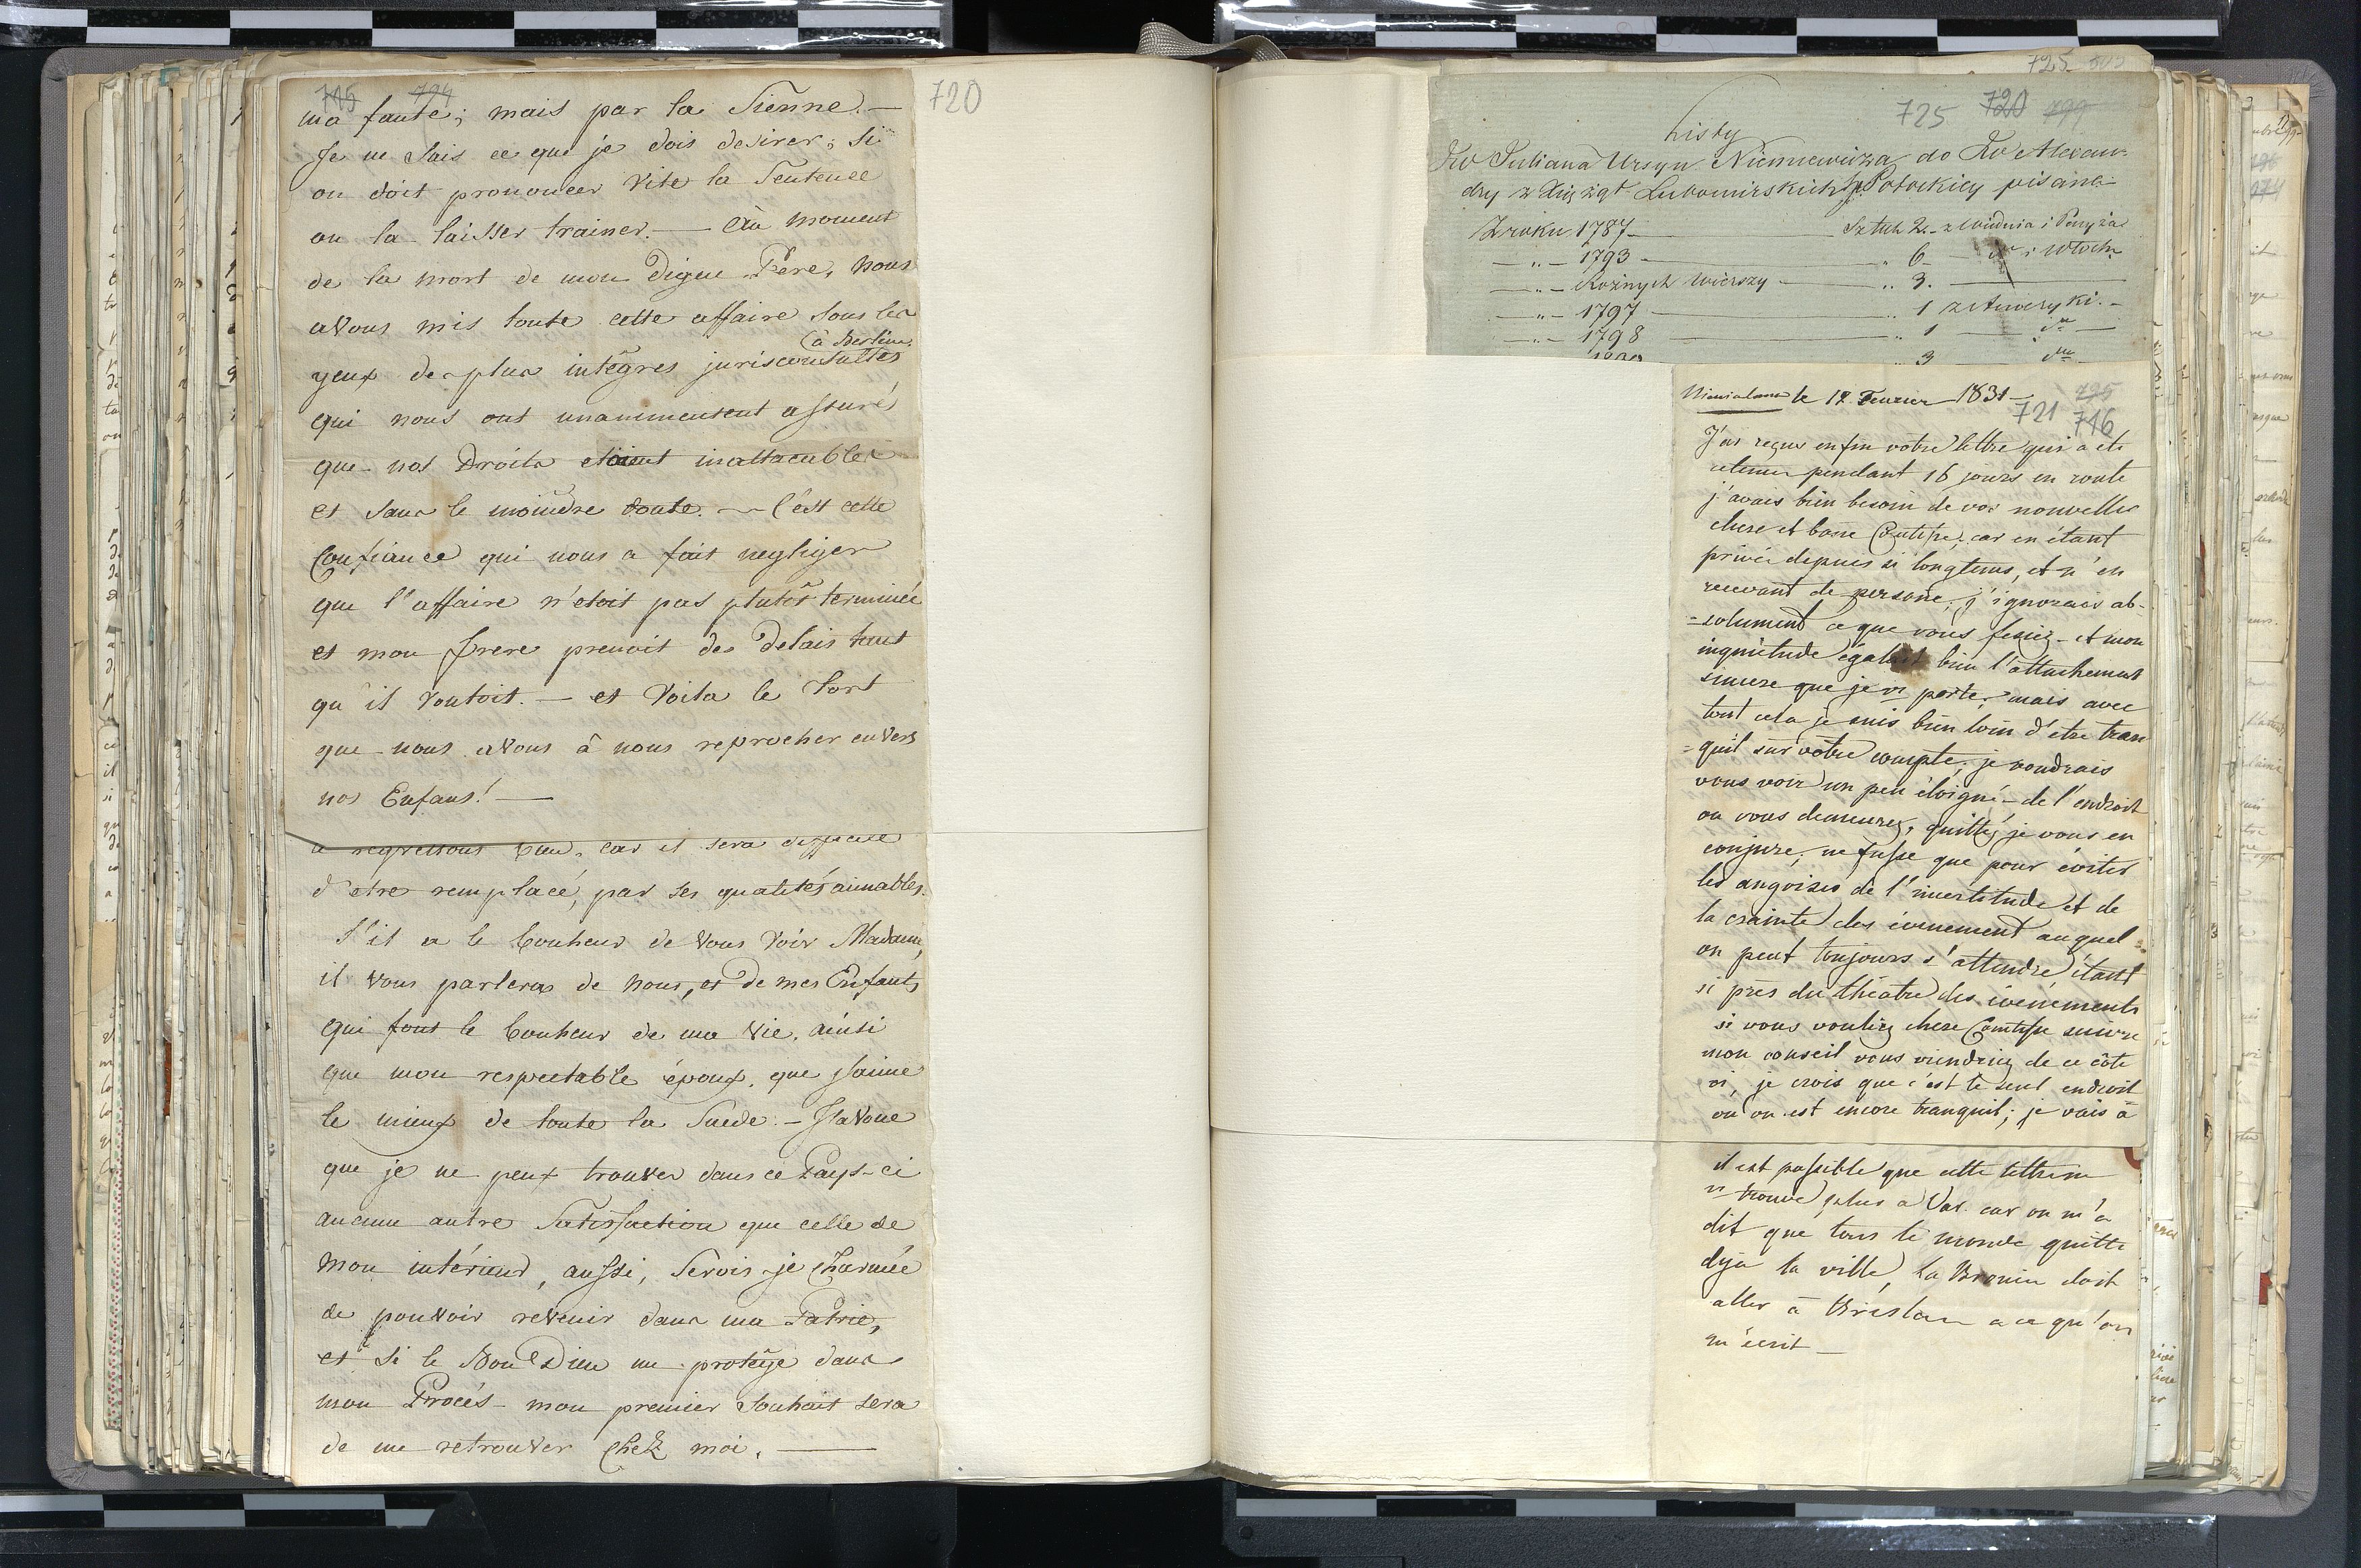 715 794
ma faute; mais par la Sienne. —
Je ne Sais ce que je dois desirer; Si
on doit prononcer Vite la Sentence
ou la laisser trainer. — Au moment
de la mort de mon Digne Père, nous
avons mis toute cette affaire sous les
(à Berlin)
yeux de plus intègres jurisconsultes
qui nous ont unanimement assurés
que nos Droits étoient inattacables
et sans le moindre doute. — C'est cette
Confiance qui nous a fait negliger
que l'affaire n'etoit pas plutôt terminée
et mon frere prenoit des Delais tant
qu'il vouloit. — et Voila le tort
que nous avons à nous reprocher envers
nos Enfans! —
regrettons bien, car il sera difficile
d'etre remplacé, par ses qualités aimables.
S'il a le bonheur de Vous Voir Madame,
il Vous parlera de nous, et de mes Enfants
qui font le bonheur de ma vie, ainsi
que mon respectable époux, que j'aime
le mieux de toute la Suède. — J'avoue
que je ne peux trouver dans ce Pays-ci
aucune autre Satisfaction que celle de
mon intérieur, aussi, Serois-je Charmée
de pouvoir revenir dans ma Patrie,
et Si le Bon Dieu me protège dans
mon Procès - mon premier Souhait sera
de me retrouver Chez moi. —
720
725
725 720 799
Listy
Juliana Ursyn Niemcewicza do Alexan
dry z Xiążąt Lubomirskich Potockiey pisane
Z roku 1787 — Sztuk 2 - z Wiednia i Paryża
— " — 1793 — " 6 — i Włoch
— " — Rożnych wierszy — " 3. —
— " — 1797 — " 1 z Ameryki. -
— " — 1798 — " 1 —
3
le 12 Fevrier 1831 —
795
721 716
J'ai reçus enfin votre lettre qui a ete
retenue pendant 16 jours en route
j'avais bien besoin de vos nouvelles
chere et bonne Comtesse, car en étant
privée depuis si longtems, et n'en
recevant de persone, j'ignorais ab-
=solument ce que vous fesiez - et mon
inquiétude égalait bien l'attachement
sincere que je vs porte; mais avec
tout cela je suis bien loin d'être tran
=quil sur votre compte; je voudrais
vous voir un peu éloigné - de l'endroit
ou vous demeurez, quittez je vous en
conjure; ne fusse que pour éviter
les angoises de l'incertitude et de
la crainte des évenement auquel
on peut toujours s'attendre étant
si près du théatre des évenéments
si vous vouliez chere Comtesse suivre
mon conseil vous viendriez de ce côte
ci, je crois que c'est le seul endroit
où on est encore tranquil; je vais à
il est possible que cette lettre ne
vs trouve plus a Var. car on m'a
dit que tous le monde quitte
deja la ville, La doit
aller à Breslau a ce qu'on
m'écrit —